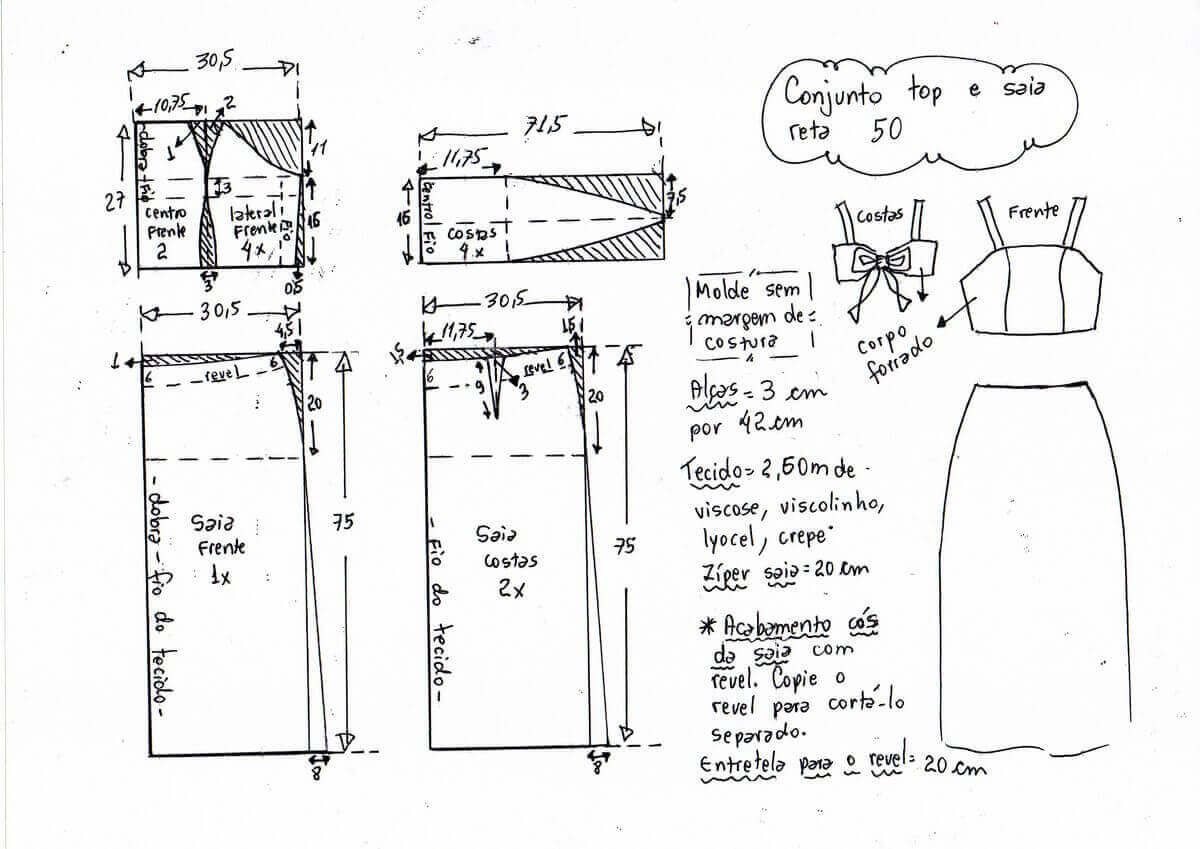 Conjunto top e saia
reta 50
30,5
10,75
2
1
11
27
dobra - fio
3
centro
Frente
2
lateral
Frente
4x
Fio
16
3
0,5
71,5
11,75
16
centro Fio
costas
4x
7,5
Costas
Frente
corpo
forrado
Molde sem
margem de
costura
Alças = 3 cm
por 42 cm
Tecido = 2,50m de
viscose, viscolinho,
lyocel, crepe
Zíper saia = 20 cm
* Acabamento cós
da saia com
revel. Copie o
revel para cortá-lo
separado.
Entretela para o revel = 20 cm
30,5
4,5
1
6
revel
6
20
75
Saia
Frente
1x
- dobra - fio do tecido -
8
30,5
11,75
6
revel
6
9
3
20
75
Saia
costas
2x
- Fio do tecido -
8